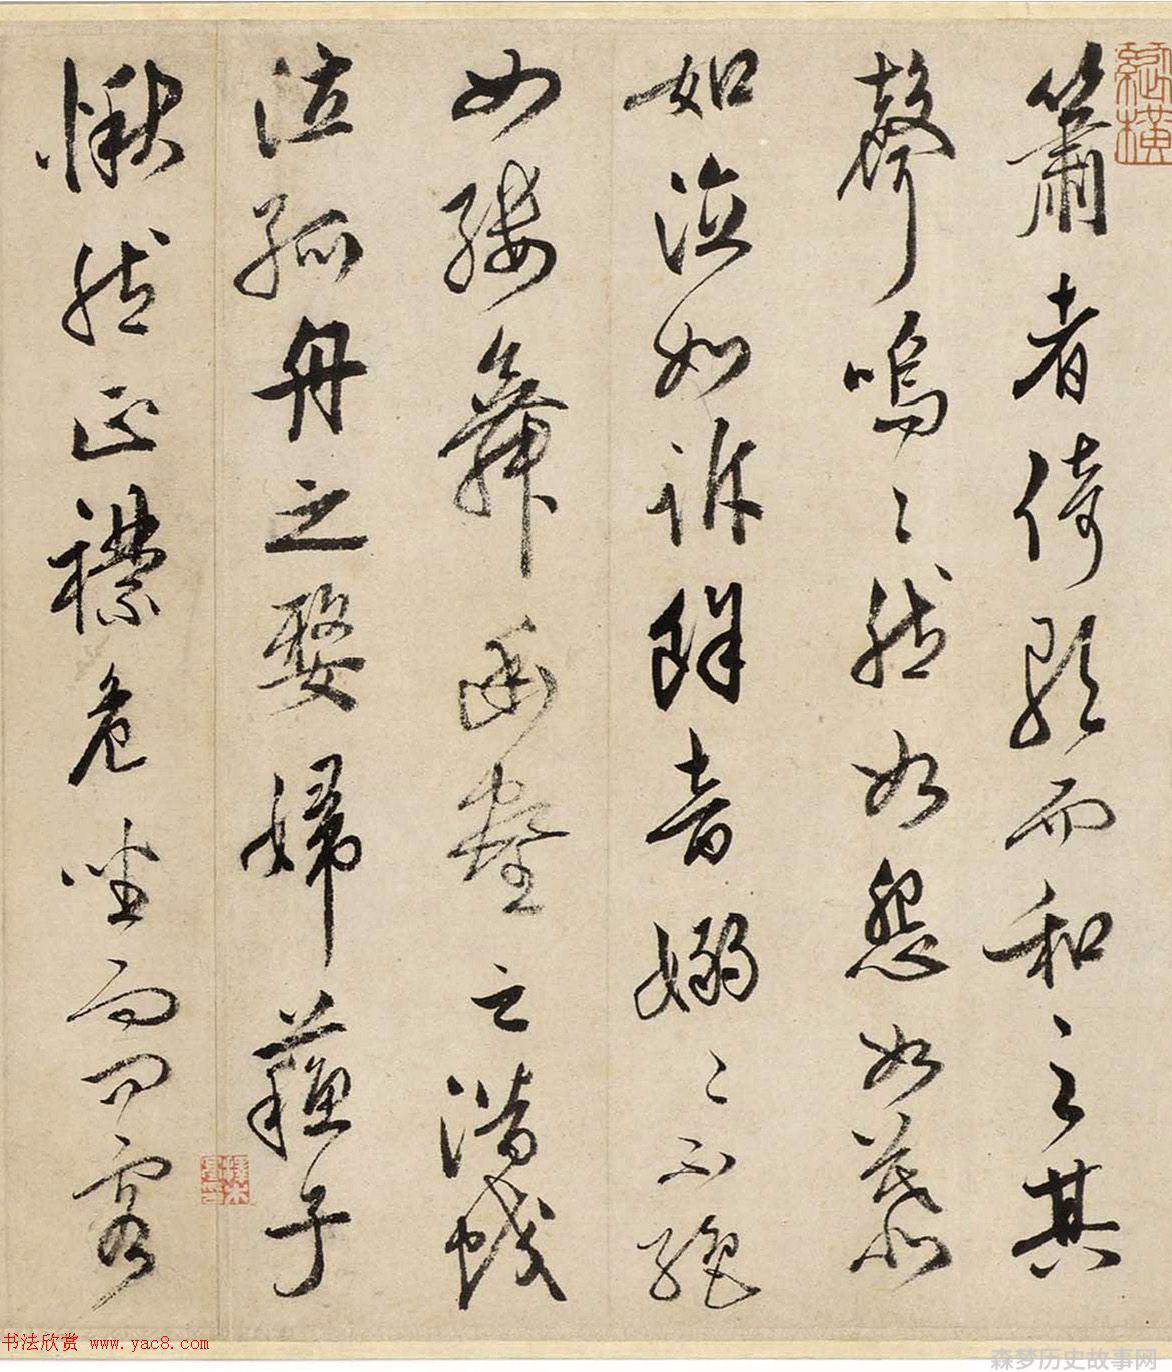 簫者倚歌而和之其
聲嗚〻然如怨如慕
如泣如訴餘音嫋〻不絕
如縷舞幽壑之潛蛟
泣孤舟之嫠婦蘇子
愀然正襟危坐而問客
书法欣赏 www.yac8.com
森梦历史故事网